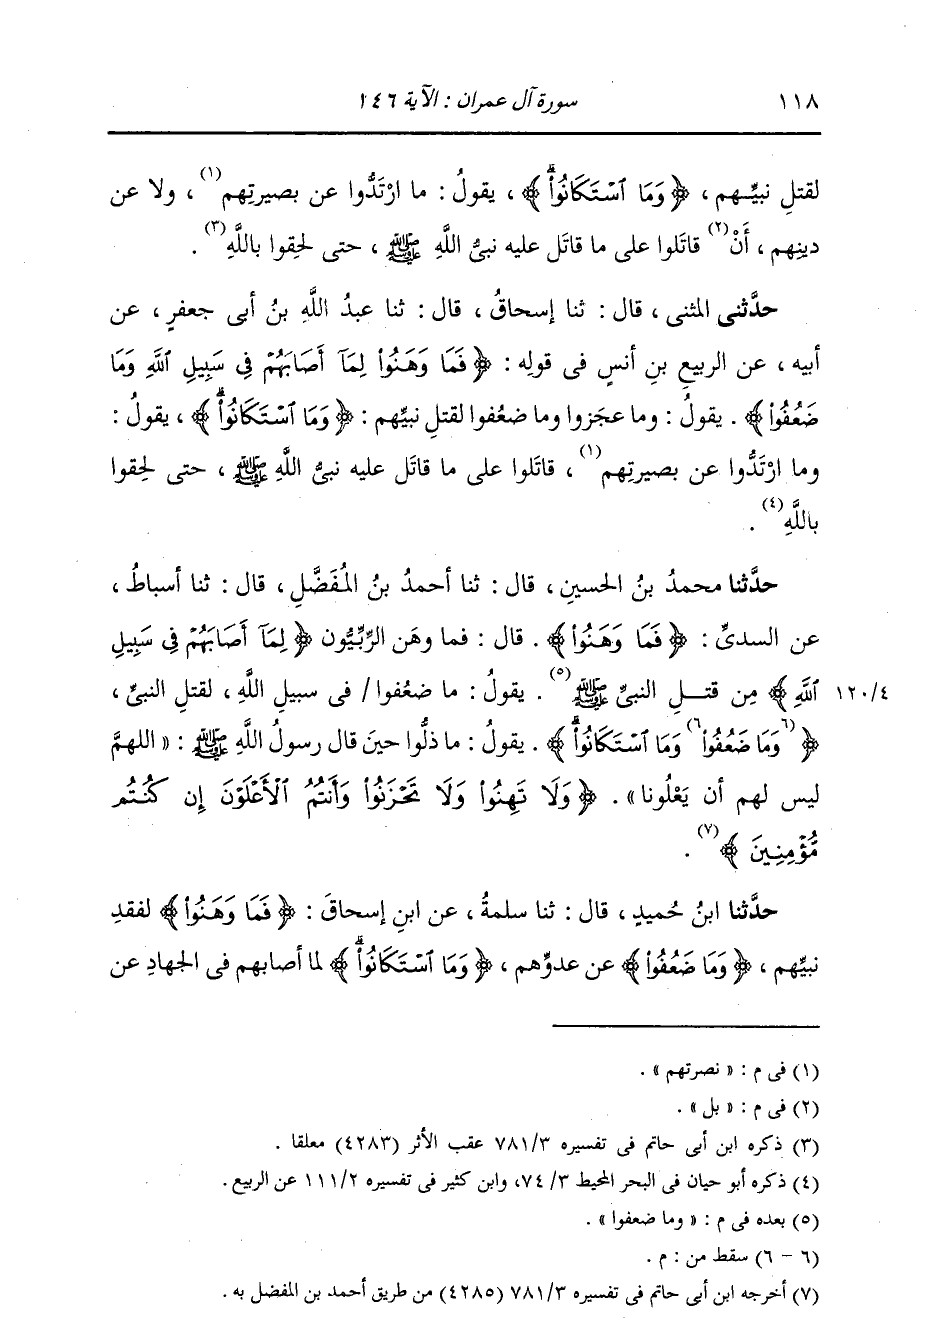 ١١٨ سورة آل عمران : الآية ١٤٦
لقتلِ نبيِّهم ، ﴿ وَمَا ٱسْتَكَانُوا۟ۗ ﴾ ، يقولُ : ما ارْتَدُّوا عن بصيرتِهم(١) ، ولا عن
دينِهم ، أَنْ(٢) قاتَلوا على ما قاتَل عليه نبىُّ اللَّهِ ﷺ ، حتى لحِقوا باللَّهِ(٣) .
حدَّثنى المثنى ، قال : ثنا إسحاقُ ، قال : ثنا عبدُ اللَّهِ بنُ أبى جعفرٍ ، عن
أبيه ، عن الربيعِ بنِ أنسٍ فى قولِه : ﴿ فَمَا وَهَنُوا۟ لِمَآ أَصَابَهُمْ فِى سَبِيلِ ٱللَّهِ وَمَا
ضَعُفُوا۟ ﴾ . يقولُ : وما عجَزوا وما ضعُفوا لقتلِ نبيِّهم : ﴿ وَمَا ٱسْتَكَانُوا۟ۗ ﴾ ، يقولُ :
وما ارْتَدُّوا عن بصيرتِهم(١) ، قاتَلوا على ما قاتَل عليه نبىُّ اللَّهِ ﷺ ، حتى لحِقوا
باللَّهِ(٤) .
حدَّثنا محمدُ بنُ الحسينِ ، قال : ثنا أحمدُ بنُ المُفَضَّلِ ، قال : ثنا أسباطُ ،
عن السدىِّ : ﴿ فَمَا وَهَنُوا۟ ﴾ . قال : فما وهَن الرِّبِّيُّون ﴿ لِمَآ أَصَابَهُمْ فِى سَبِيلِ
ٱللَّهِ ﴾ مِن قتلِ النبىِّ ﷺ(٥) . يقولُ : ما ضعُفوا / فى سبيلِ اللَّهِ ، لقتلِ النبىِّ ، ١٢٠/٤
﴿ (٦وَمَا ضَعُفُوا۟٦) وَمَا ٱسْتَكَانُوا۟ۗ ﴾ . يقولُ : ما ذلُّوا حينَ قال رسولُ اللَّهِ ﷺ : « اللهمَّ
ليس لهم أن يَعْلُونا » . ﴿ وَلَا تَهِنُوا۟ وَلَا تَحْزَنُوا۟ وَأَنتُمُ ٱلْأَعْلَوْنَ إِن كُنتُم
مُّؤْمِنِينَ ﴾(٧) .
حدَّثنا ابنُ حُميدٍ ، قال : ثنا سلمةُ ، عن ابنِ إسحاقَ : ﴿ فَمَا وَهَنُوا۟ ﴾ لفقدِ
نبيِّهم ، ﴿ وَمَا ضَعُفُوا۟ ﴾ عن عدوِّهم ، ﴿ وَمَا ٱسْتَكَانُوا۟ۗ ﴾ لما أصابهم فى الجهادِ عن
(١) فى م : « نصرتهم » .
(٢) فى م : « بل » .
(٣) ذكره ابن أبى حاتم فى تفسيره ٧٨١/٣ عقب الأثر (٤٢٨٣) معلقا .
(٤) ذكره أبو حيان فى البحر المحيط ٧٤/٣، وابن كثير فى تفسيره ١١١/٢ عن الربيع .
(٥) بعده فى م : « وما ضعفوا » .
(٦ - ٦) سقط من : م .
(٧) أخرجه ابن أبى حاتم فى تفسيره ٧٨١/٣ (٤٢٨٥) من طريق أحمد بن المفضل به .